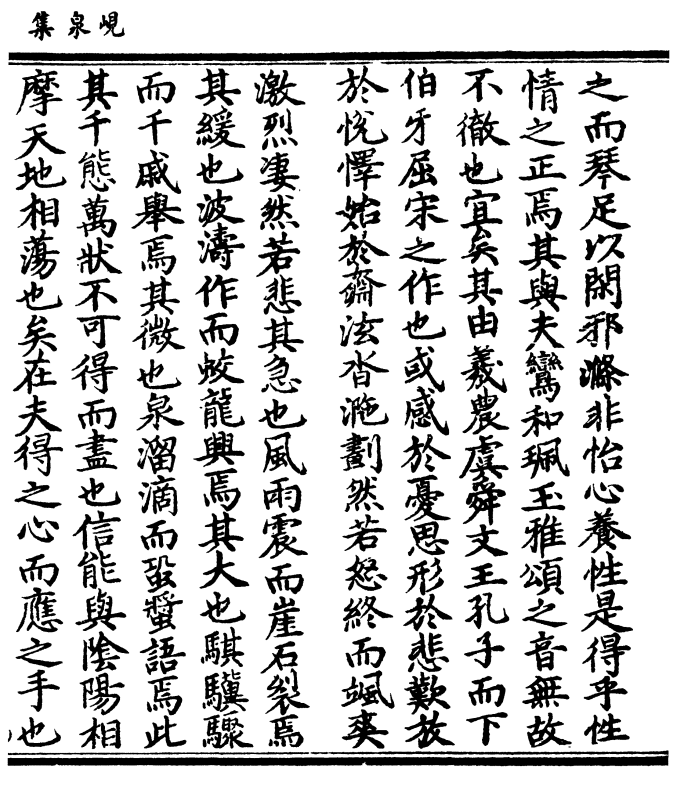 峴泉集
之而琴足以閑邪滌非怡心養性是得乎性
情之正焉其與夫鸞和珮玉雅頌之音無故
不徹也宜矣其由羲農虞舜文王孔子而下
伯牙屈宋之作也或感於憂思形於悲歎放
於悅懌始於齋泫沓滟劃然若怒終而颯爽
激烈淒然若悲其急也風雨震而崖石裂焉
其緩也波濤作而蛟龍興焉其大也騏驥驟
而千戚舉焉其微也泉溜滴而蛩螿語焉此
其千態萬狀不可得而盡也信能與陰陽相
摩天地相蕩也矣在夫得之心而應之手也